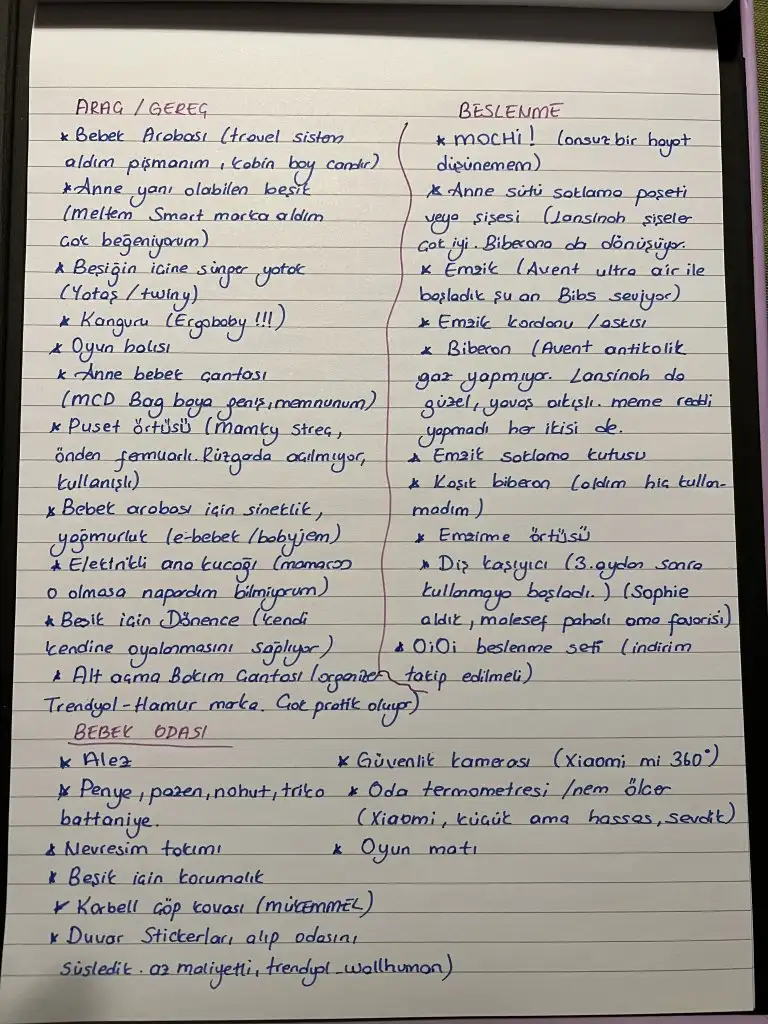 ARAÇ / GEREÇ
* Bebek Arabası (travel sistem
aldım pişmanım, kabin boy candır)
* Anne yanı olabilen beşik
(Meltem Smart marka aldım
çok beğeniyorum)
* Beşiğin içine sünger yatak
(Yataş / twiny)
* Kanguru (Ergobaby !!!)
* Oyun halısı
* Anne bebek çantası
(MCD Bag baya geniş, memnunum)
* Puset örtüsü (Mamky streç,
önden fermuarlı. Rüzgarda açılmıyor,
kullanışlı)
* Bebek arabası için sineklik,
yağmurluk (e-bebek / babyjem)
* Elektrikli ana kucağı (mamaroo
o olmasa napardım bilmiyorum)
* Beşik için Dönence (kendi
kendine oyalanmasını sağlıyor)
* Alt açma Bakım Çantası (organizer
Trendyol-Hamur marka. Çok pratik oluyor)
BESLENME
* MOCHİ! (onsuz bir hayat
düşünemem)
* Anne sütü saklama poşeti
veya şişesi (Lansinoh şişeler
çok iyi. Biberona da dönüşüyor.
* Emzik (Avent ultra air ile
başladık şu an Bibs seviyor)
* Emzik kordonu / askısı
* Biberon (Avent antikolik
gaz yapmıyor. Lansinoh da
güzel, yavaş akışlı. meme reddi
yapmadı her ikisi de.
* Emzik saklama kutusu
* Kaşık biberon (aldım hiç kullan-
madım)
* Emzirme örtüsü
* Diş kaşıyıcı (3. aydan sonra
kullanmaya başladı.) (Sophie
aldık, malesef pahalı ama favorisi)
* OiOi beslenme seti (indirim
takip edilmeli)
BEBEK ODASI
* Alez
* Penye, pazen, nohut, triko
battaniye.
* Nevresim takımı
* Beşik için korumalık
* Korbell çöp kovası (MÜKEMMEL)
* Duvar Stickerları alıp odasını
süsledik. az maliyetli, trendyol-wallhuman)
* Güvenlik kamerası (Xiaomi mi 360°)
* Oda termometresi / nem ölçer
(Xiaomi, küçük ama hassas, sevdik)
* Oyun matı